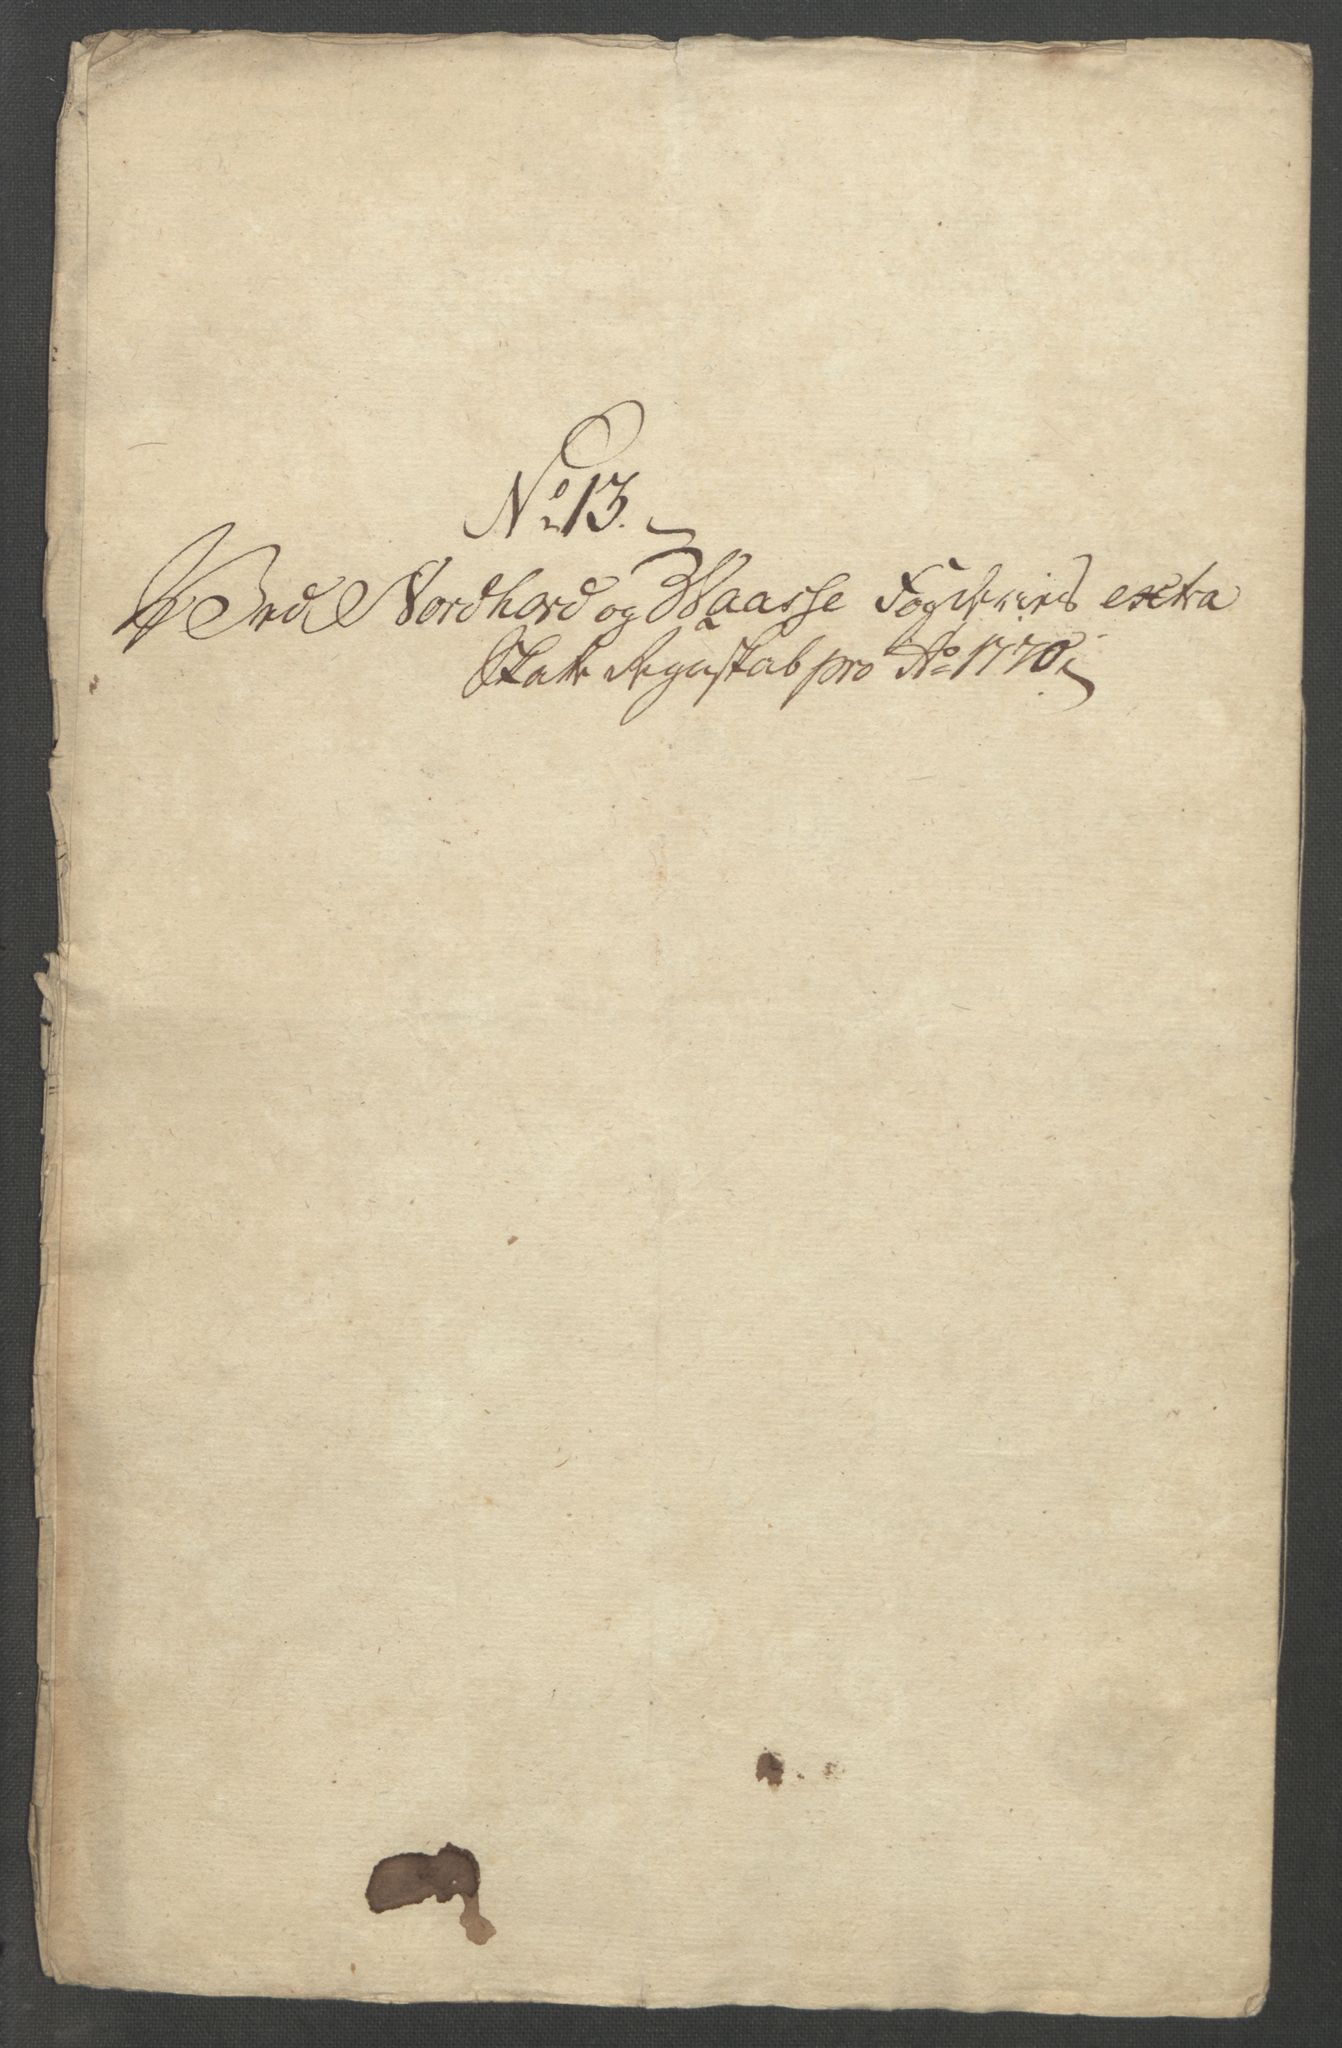 No 13.
Ved Nordhord og Waasse Fogderies extra
Skatte Regnskab pro Ao 1770